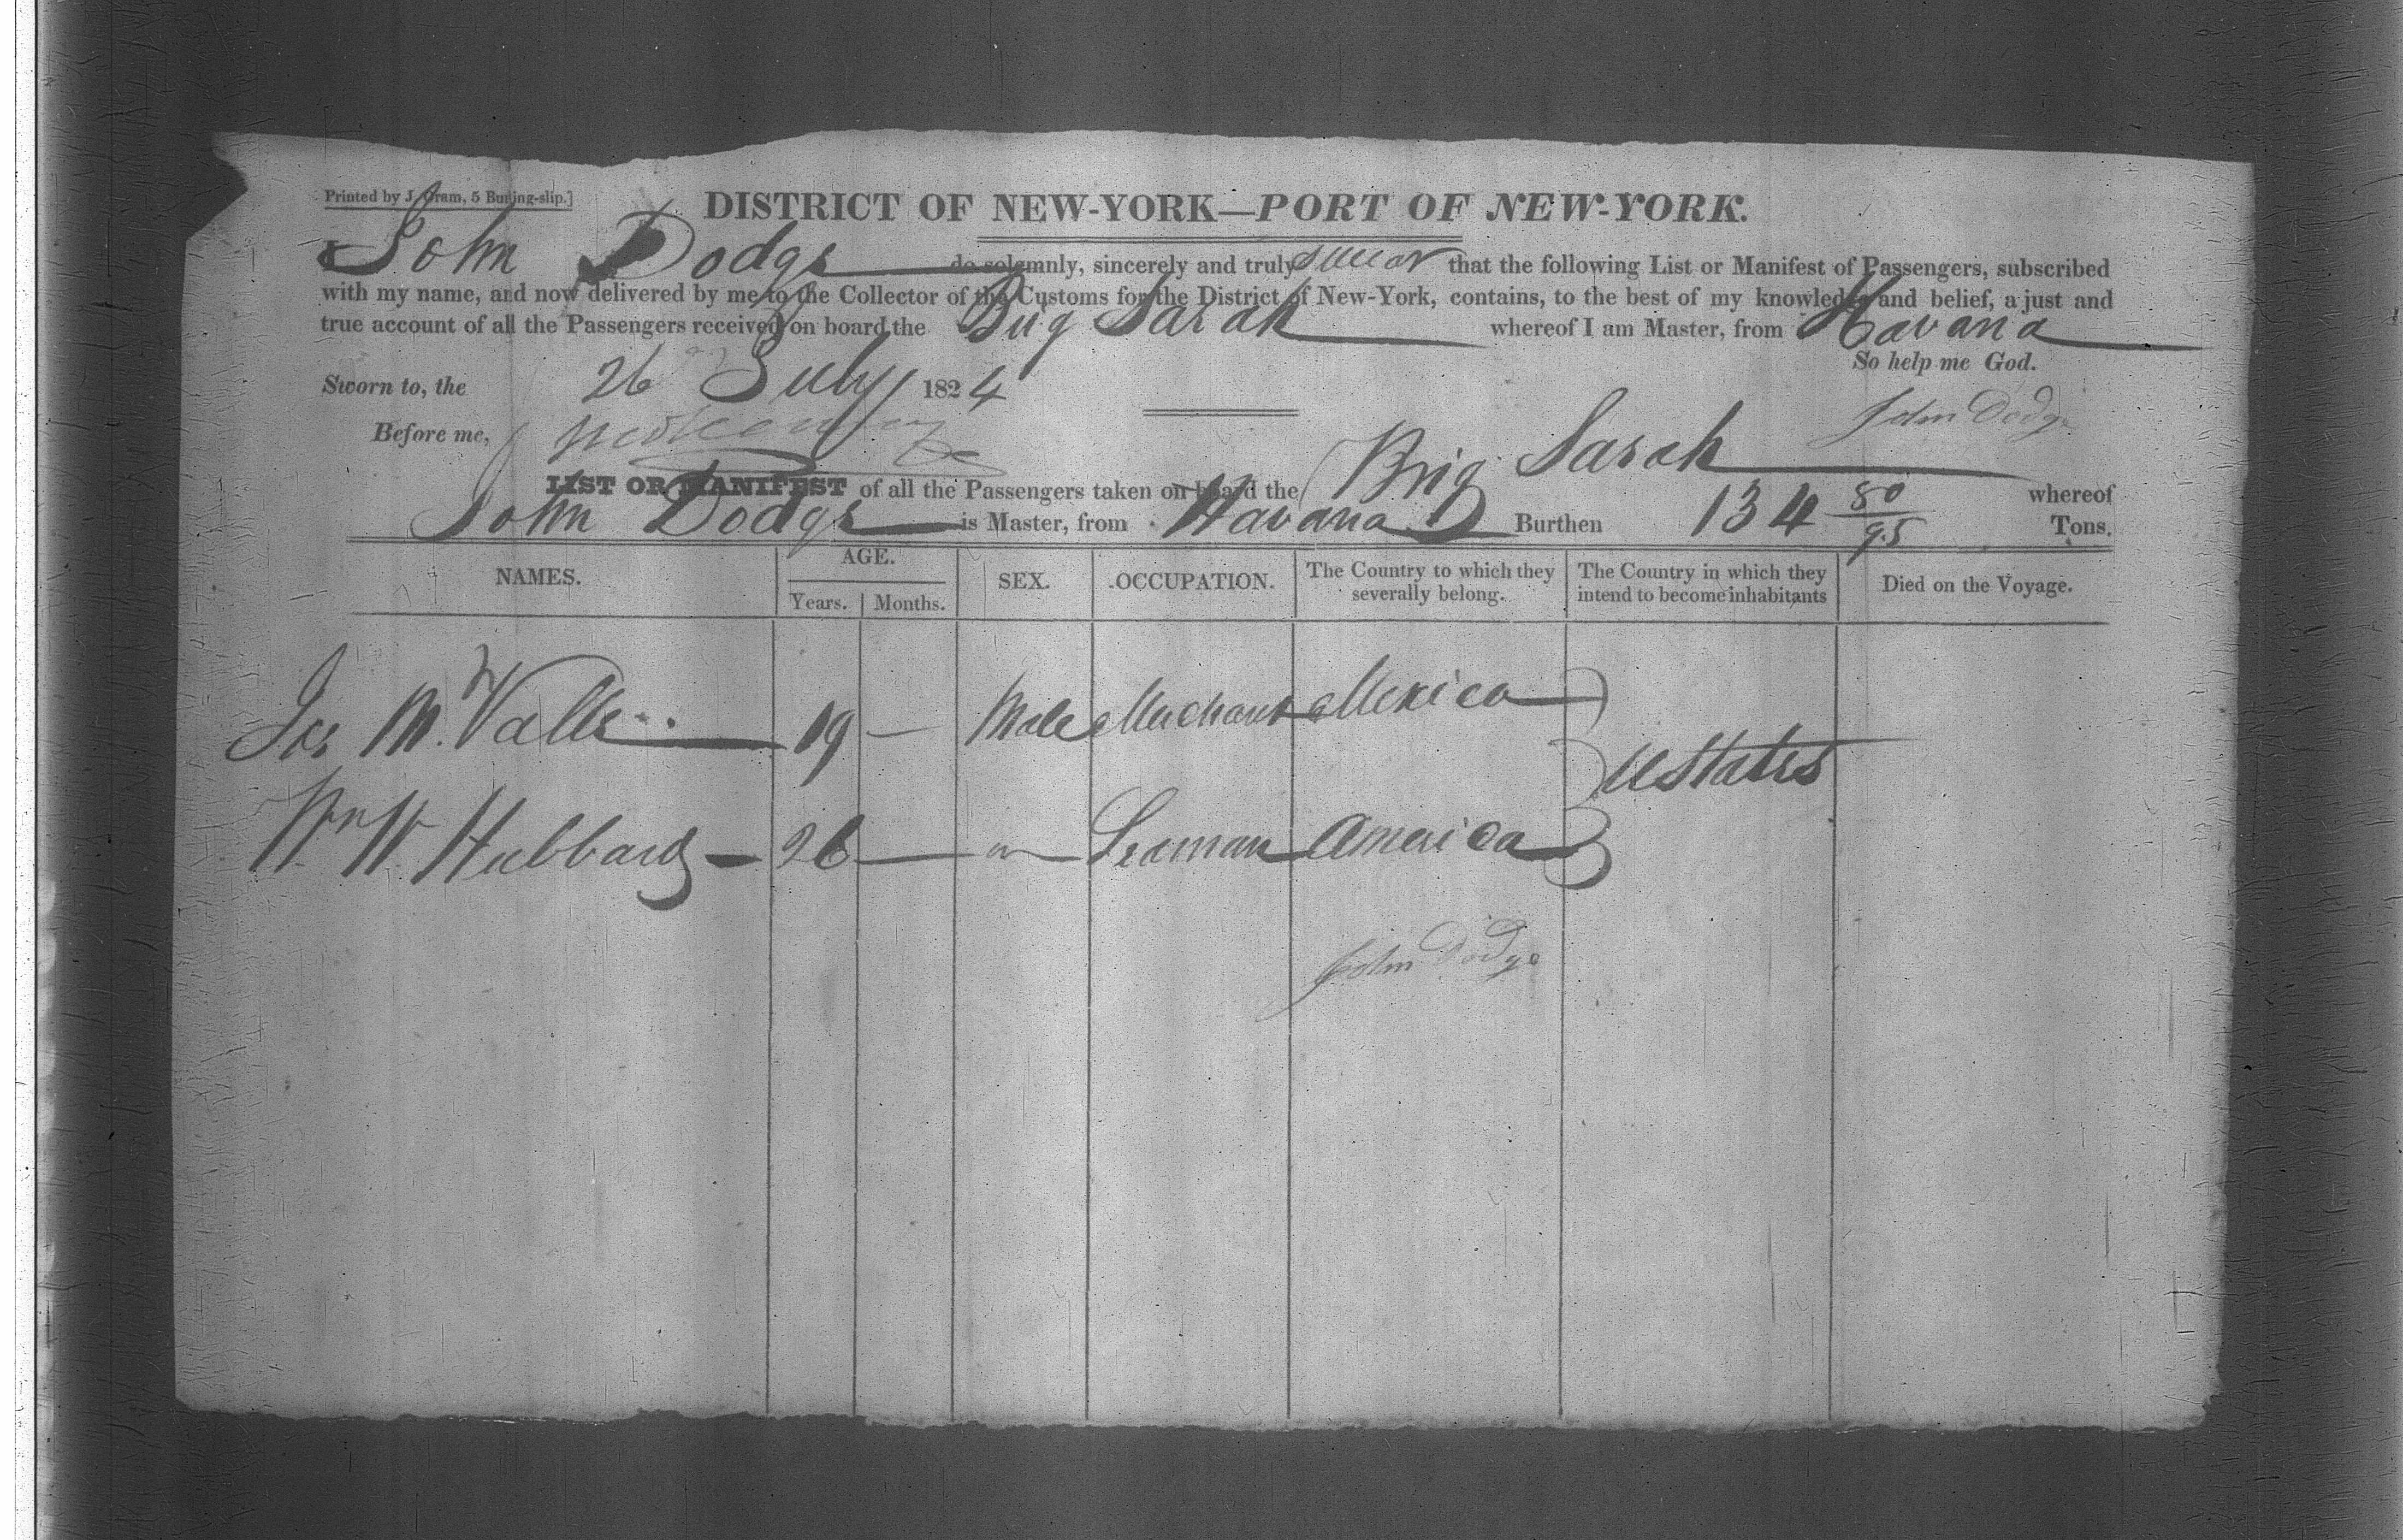 Printed by J. Oram, 5 Burling-slip.]
DISTRICT OF NEW-YORK—PORT OF NEW-YORK.
I John Dodge do solemnly, sincerely and truly swear that the following List or Manifest of Passengers, subscribed
with my name, and now delivered by me to the Collector of the Customs for the District of New-York, contains, to the best of my knowledge and belief, a just and
true account of all the Passengers received on board the Brig Sarah whereof I am Master, from Havana
So help me God.
Sworn to, the 26 July 1824
John Dodge
Before me,
LIST OR MANIFEST of all the Passengers taken on board the Brig Sarah whereof
John Dodge is Master, from Havana Burthen 134 80/95 Tons.
NAMES. AGE. Years. Months. SEX. OCCUPATION. The Country to which they severally belong. The Country in which they intend to become inhabitants Died on the Voyage.
M. Valle 19 — Male Merchant Mexico
U States
Wm W. Hubbard — 26 — Seaman America
John Dodge